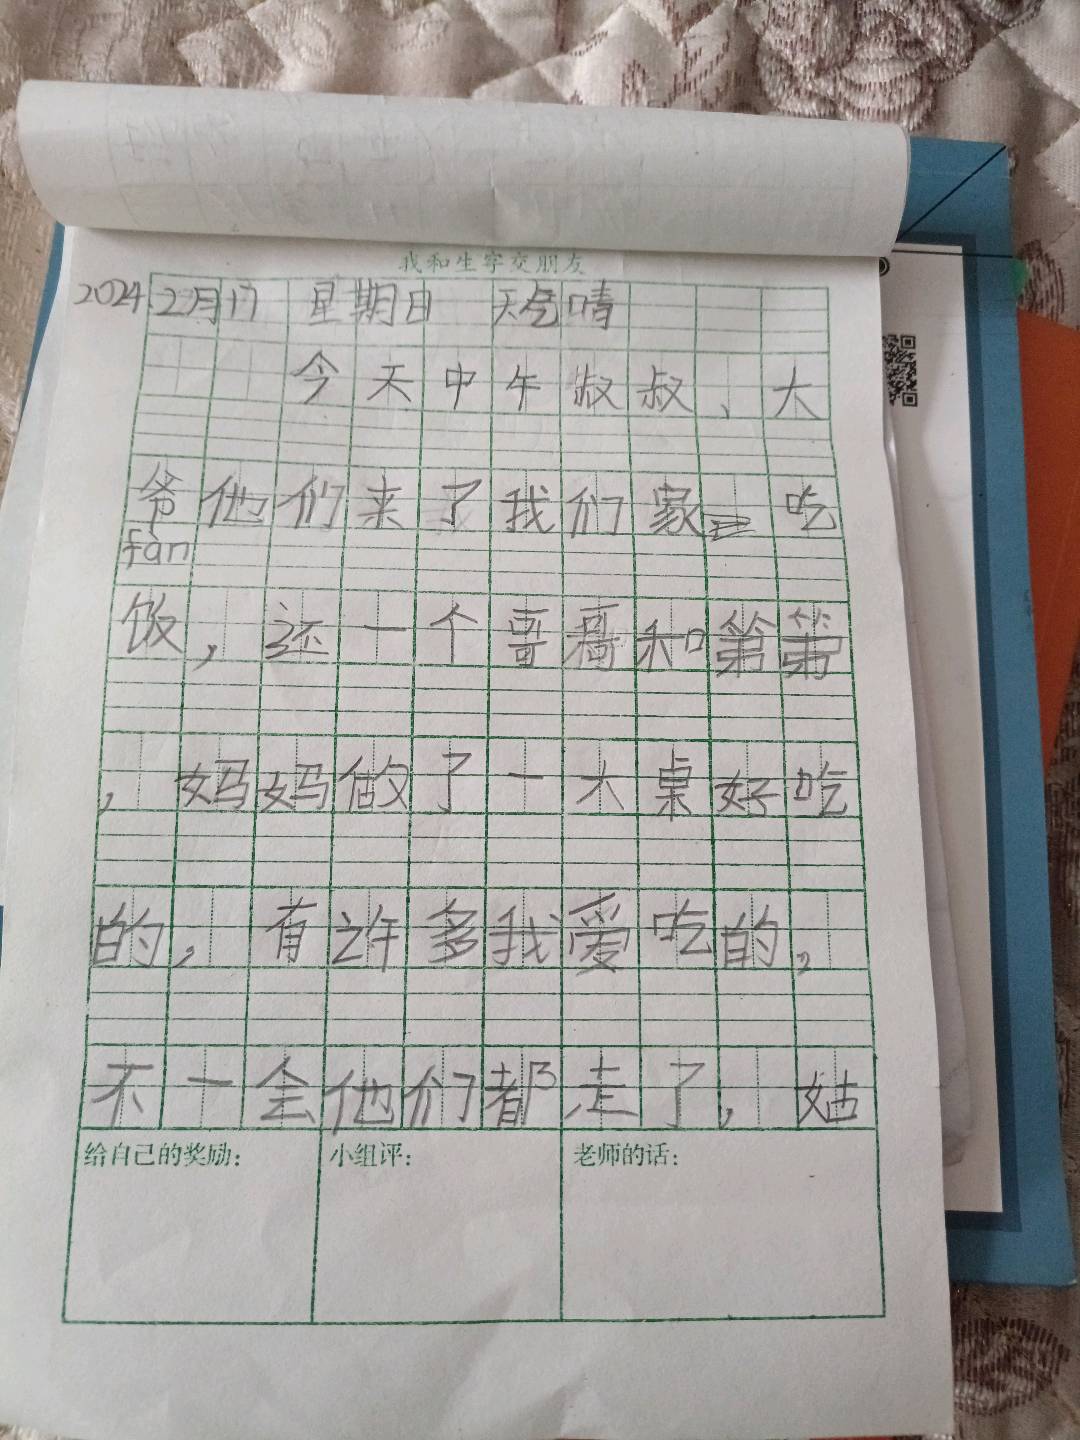 我和生字交朋友
2024.2月17 星期日 天气晴
今天中午叔叔、大
爷他们来了我们家 吃
fàn
饭，还一个哥哥和第第
，妈妈做了一大桌好吃
的，有许多我爱吃的，
不一会他们都走了，姑
给自己的奖励： 小组评： 老师的话：